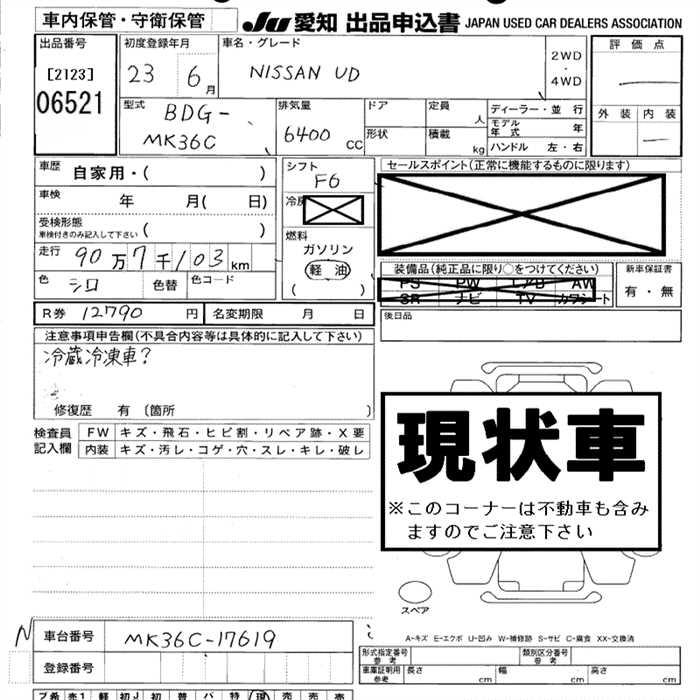 車内保管・守衛保管
JU 愛知 出品申込書 JAPAN USED CAR DEALERS ASSOCIATION
出品番号
[2123]
06521
初度登録年月
23 6月
車名・グレード
NISSAN UD
2WD
・
4WD
評価点
外装 内装
型式
BDG-
MK36C
排気量
6400 CC
ドア
形状
定員 人
積載 kg
ディーラー・並行
モデル年式 年
ハンドル 左・右
車歴 自家用・( )
車検 年 月( 日)
受検形態
車検付きのみ記入して下さい ( )
走行 90万7千103km
色 シロ 色替 色コード
シフト
F6
冷房
燃料
ガソリン
軽油
( )
セールスポイント(正常に機能するものに限ります)
装備品(純正品に限り○をつけてください)
PS PW エアB AW
SR ナビ TV カワシート
新車保証書
有・無
後日品
R券 12790 円 名変期限 月 日
注意事項申告欄(不具合内容等は具体的に記入して下さい)
冷蔵冷凍車?
修復歴 有 〔箇所 〕
検査員
記入欄
FW キズ・飛石・ヒビ割・リペア跡・X要
内装 キズ・汚レ・コゲ・穴・スレ・キレ・破レ
現状車
※このコーナーは不動車も含み
ますのでご注意下さい
スペア
A-キズ E-エクボ U-凹み W-補修跡 S-サビ C-腐食 XX-交換済
N
車台番号 MK36C-17619
登録番号
型式指定番号
参考
類別区分番号
参考
車庫証明用
参考
長さ cm 幅 cm 高さ cm